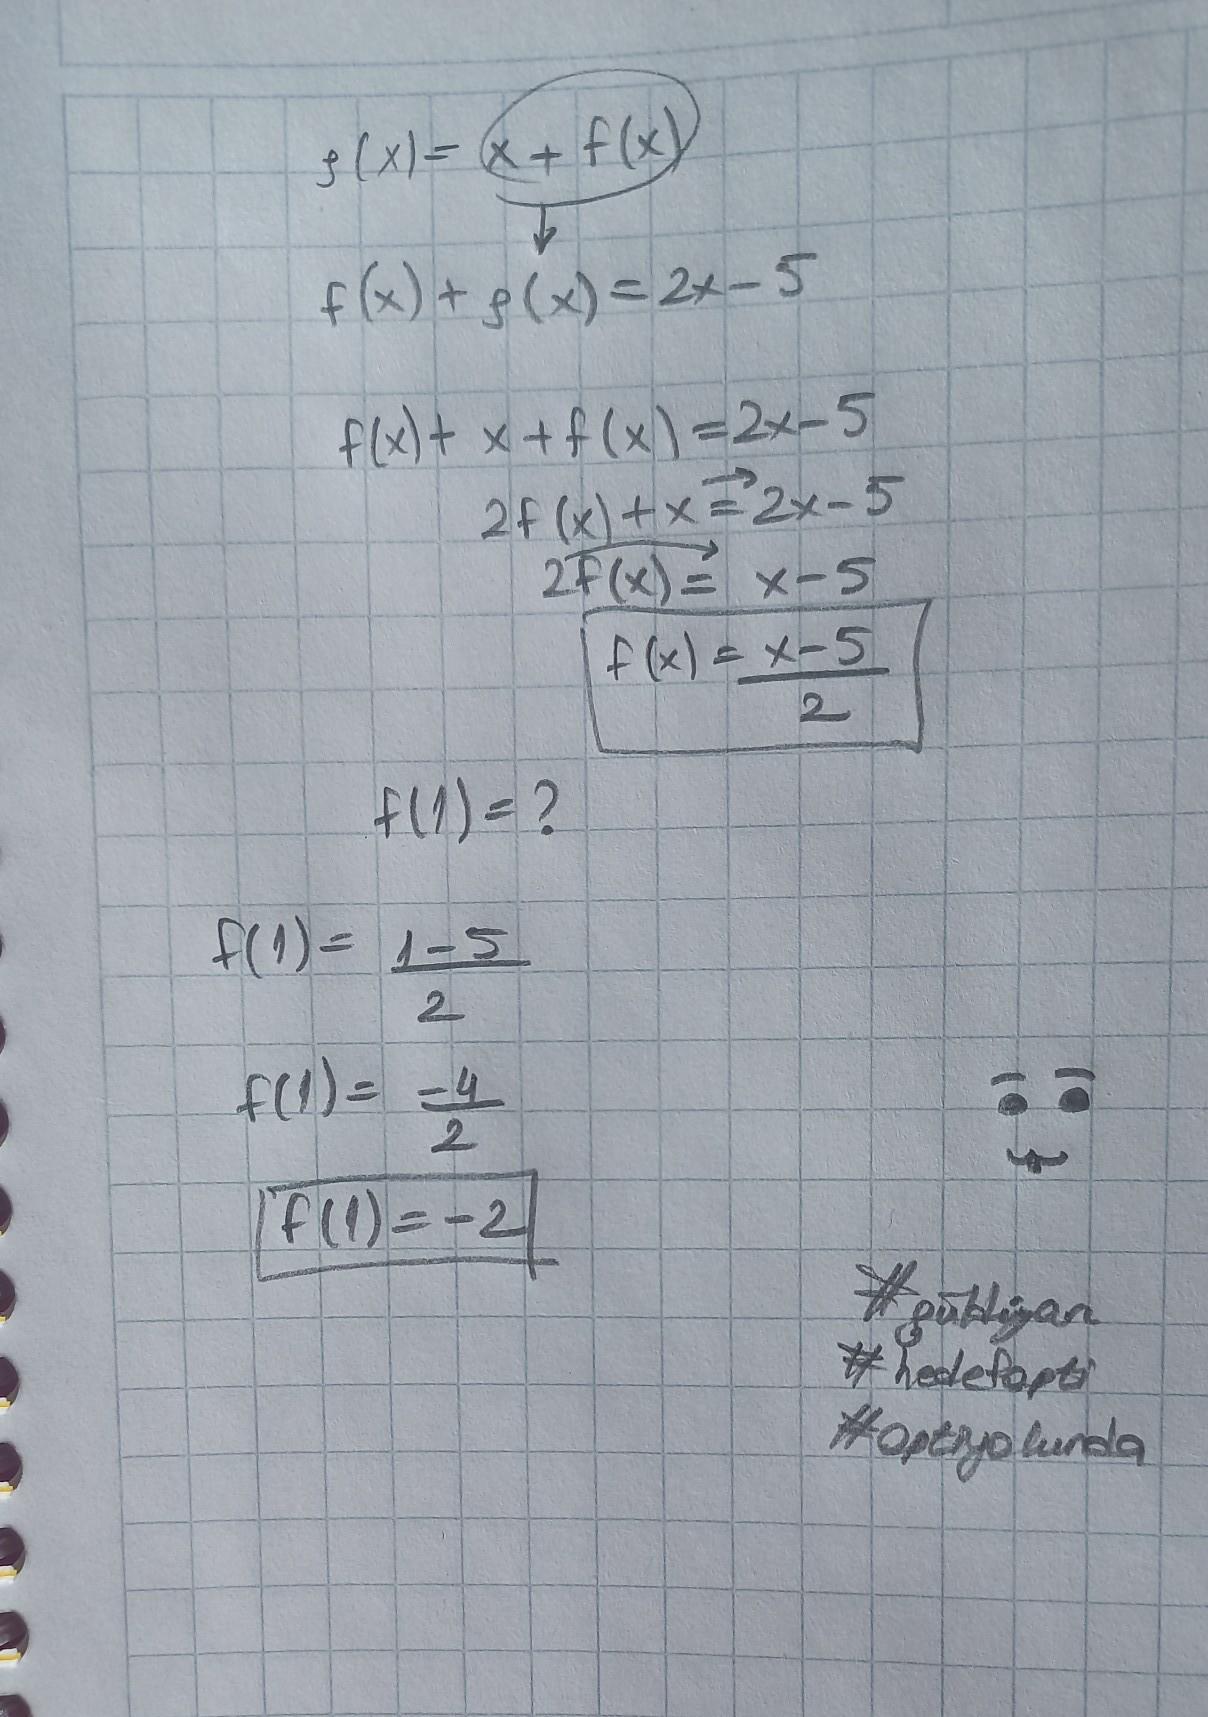 g(x) = x + f(x)
f(x) + g(x) = 2x - 5
f(x) + x + f(x) = 2x - 5
2f(x) + x = 2x - 5
2f(x) = x - 5
f(x) = x - 5
2
f(1) = ?
f(1) = 1 - 5
2
f(1) = -4
2
f(1) = -2
#hedefapti
#aptiyolunda